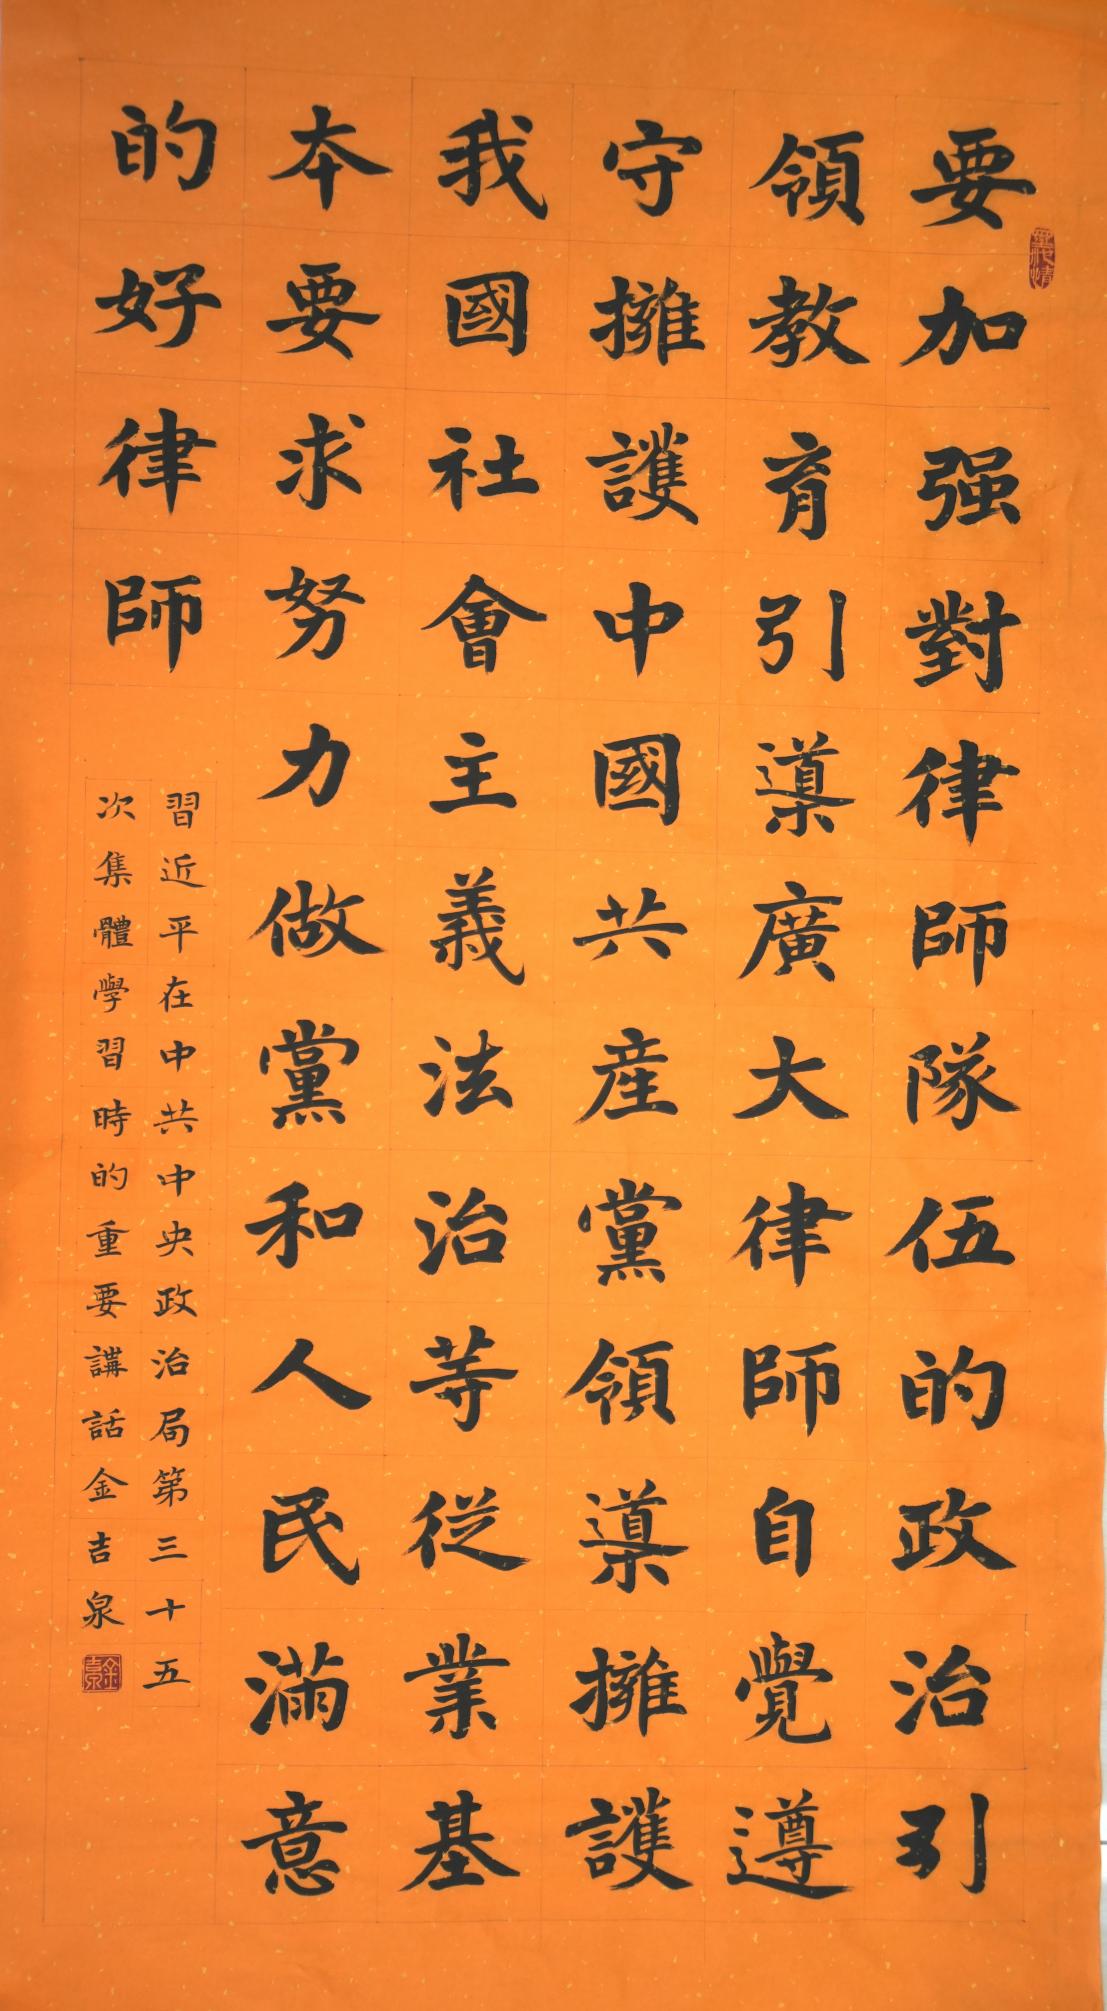 要加强對律師隊伍的政治引
領教育引導廣大律師自覺遵
守擁護中國共産黨領導擁護
我國社會主義法治等從業基
本要求努力做黨和人民滿意
的好律師
習近平在中共中央政治局第三十五
次集體學習時的重要講話金吉泉